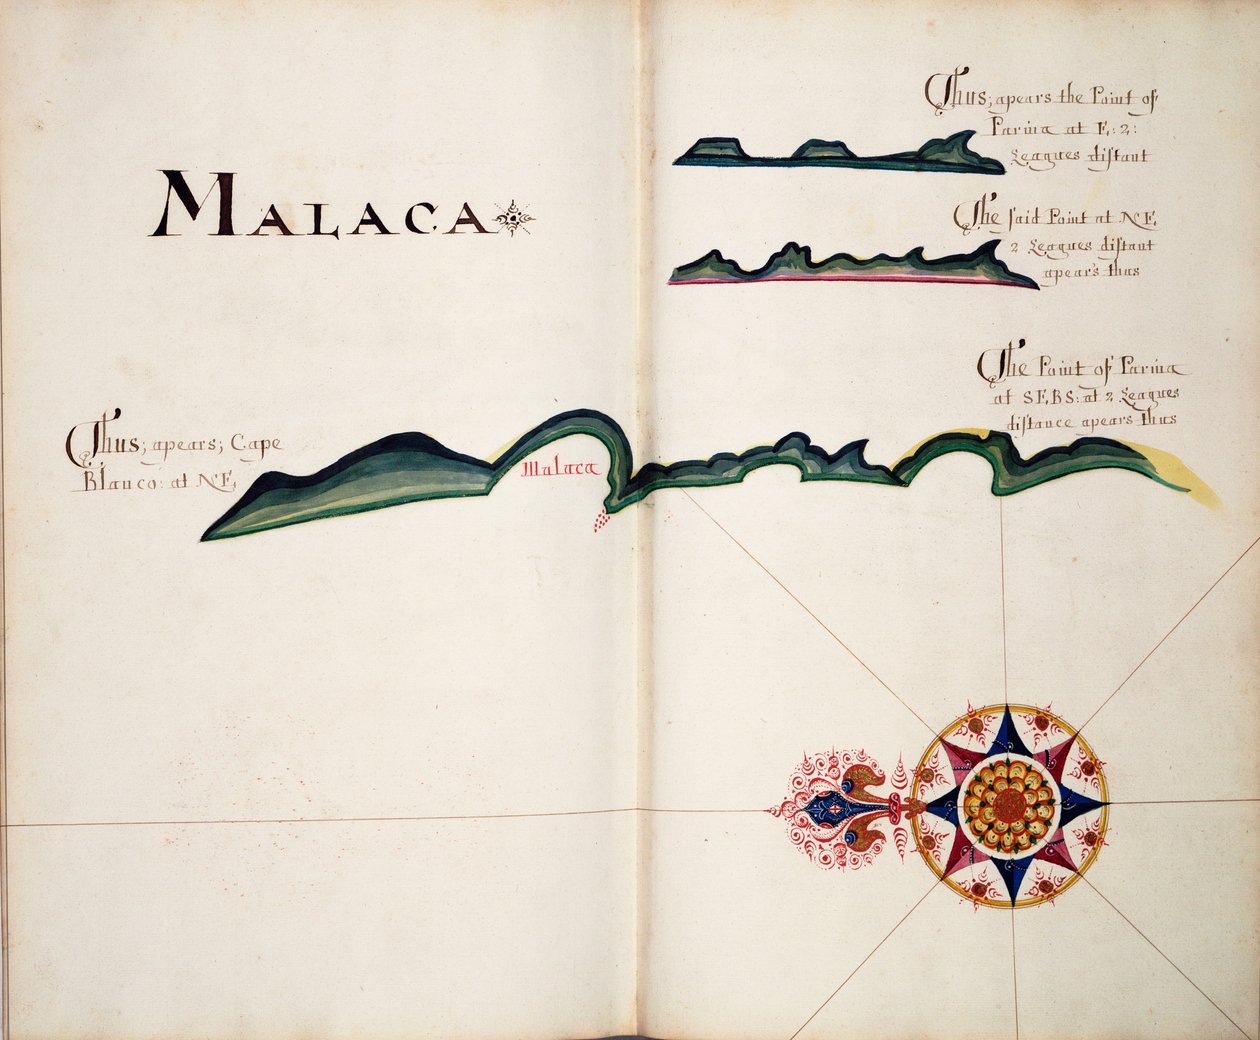 MALACA
Thus; apears the Point of
Parina at E: 2:
Leagues distant
The said Point at NE
2 Leagues distant
apear's thus
The Point of Parina
at SEBS: at 2 Leagues
distance apears thus
Thus; apears; Cape
Blanco: at NE
Malaca